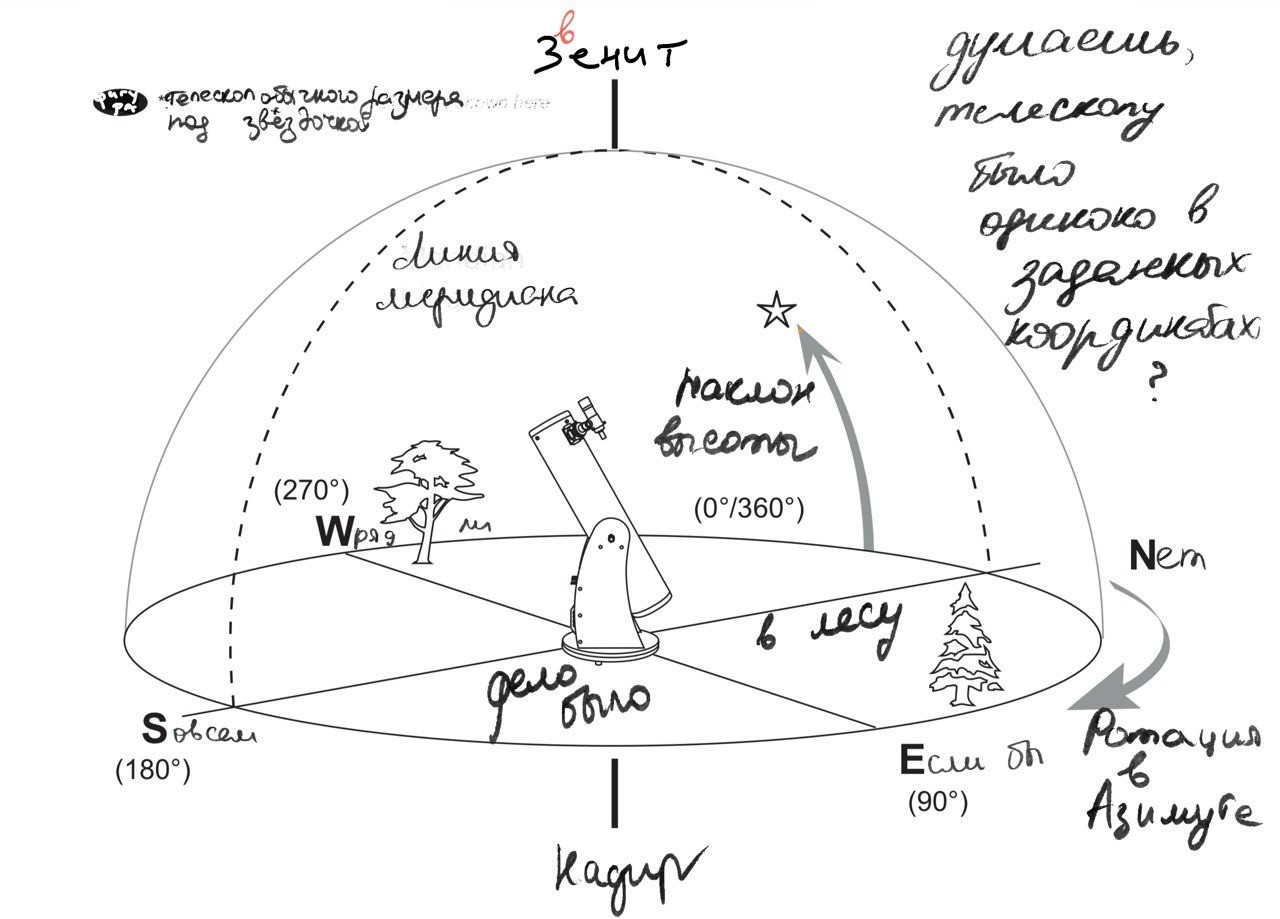 в
Зенит
думаешь,
телескопу
было
одиноко в
заданных
координатах
?
*телескоп обычного размера
под звёздочкой
Линия
меридиана
наклон
высоты
(270°)
Wряд
ли
(0°/360°)
Nет
в лесу
дело
было
Sовсем
(180°)
Если бы
(90°)
Ротация
в
Азимуте
надир